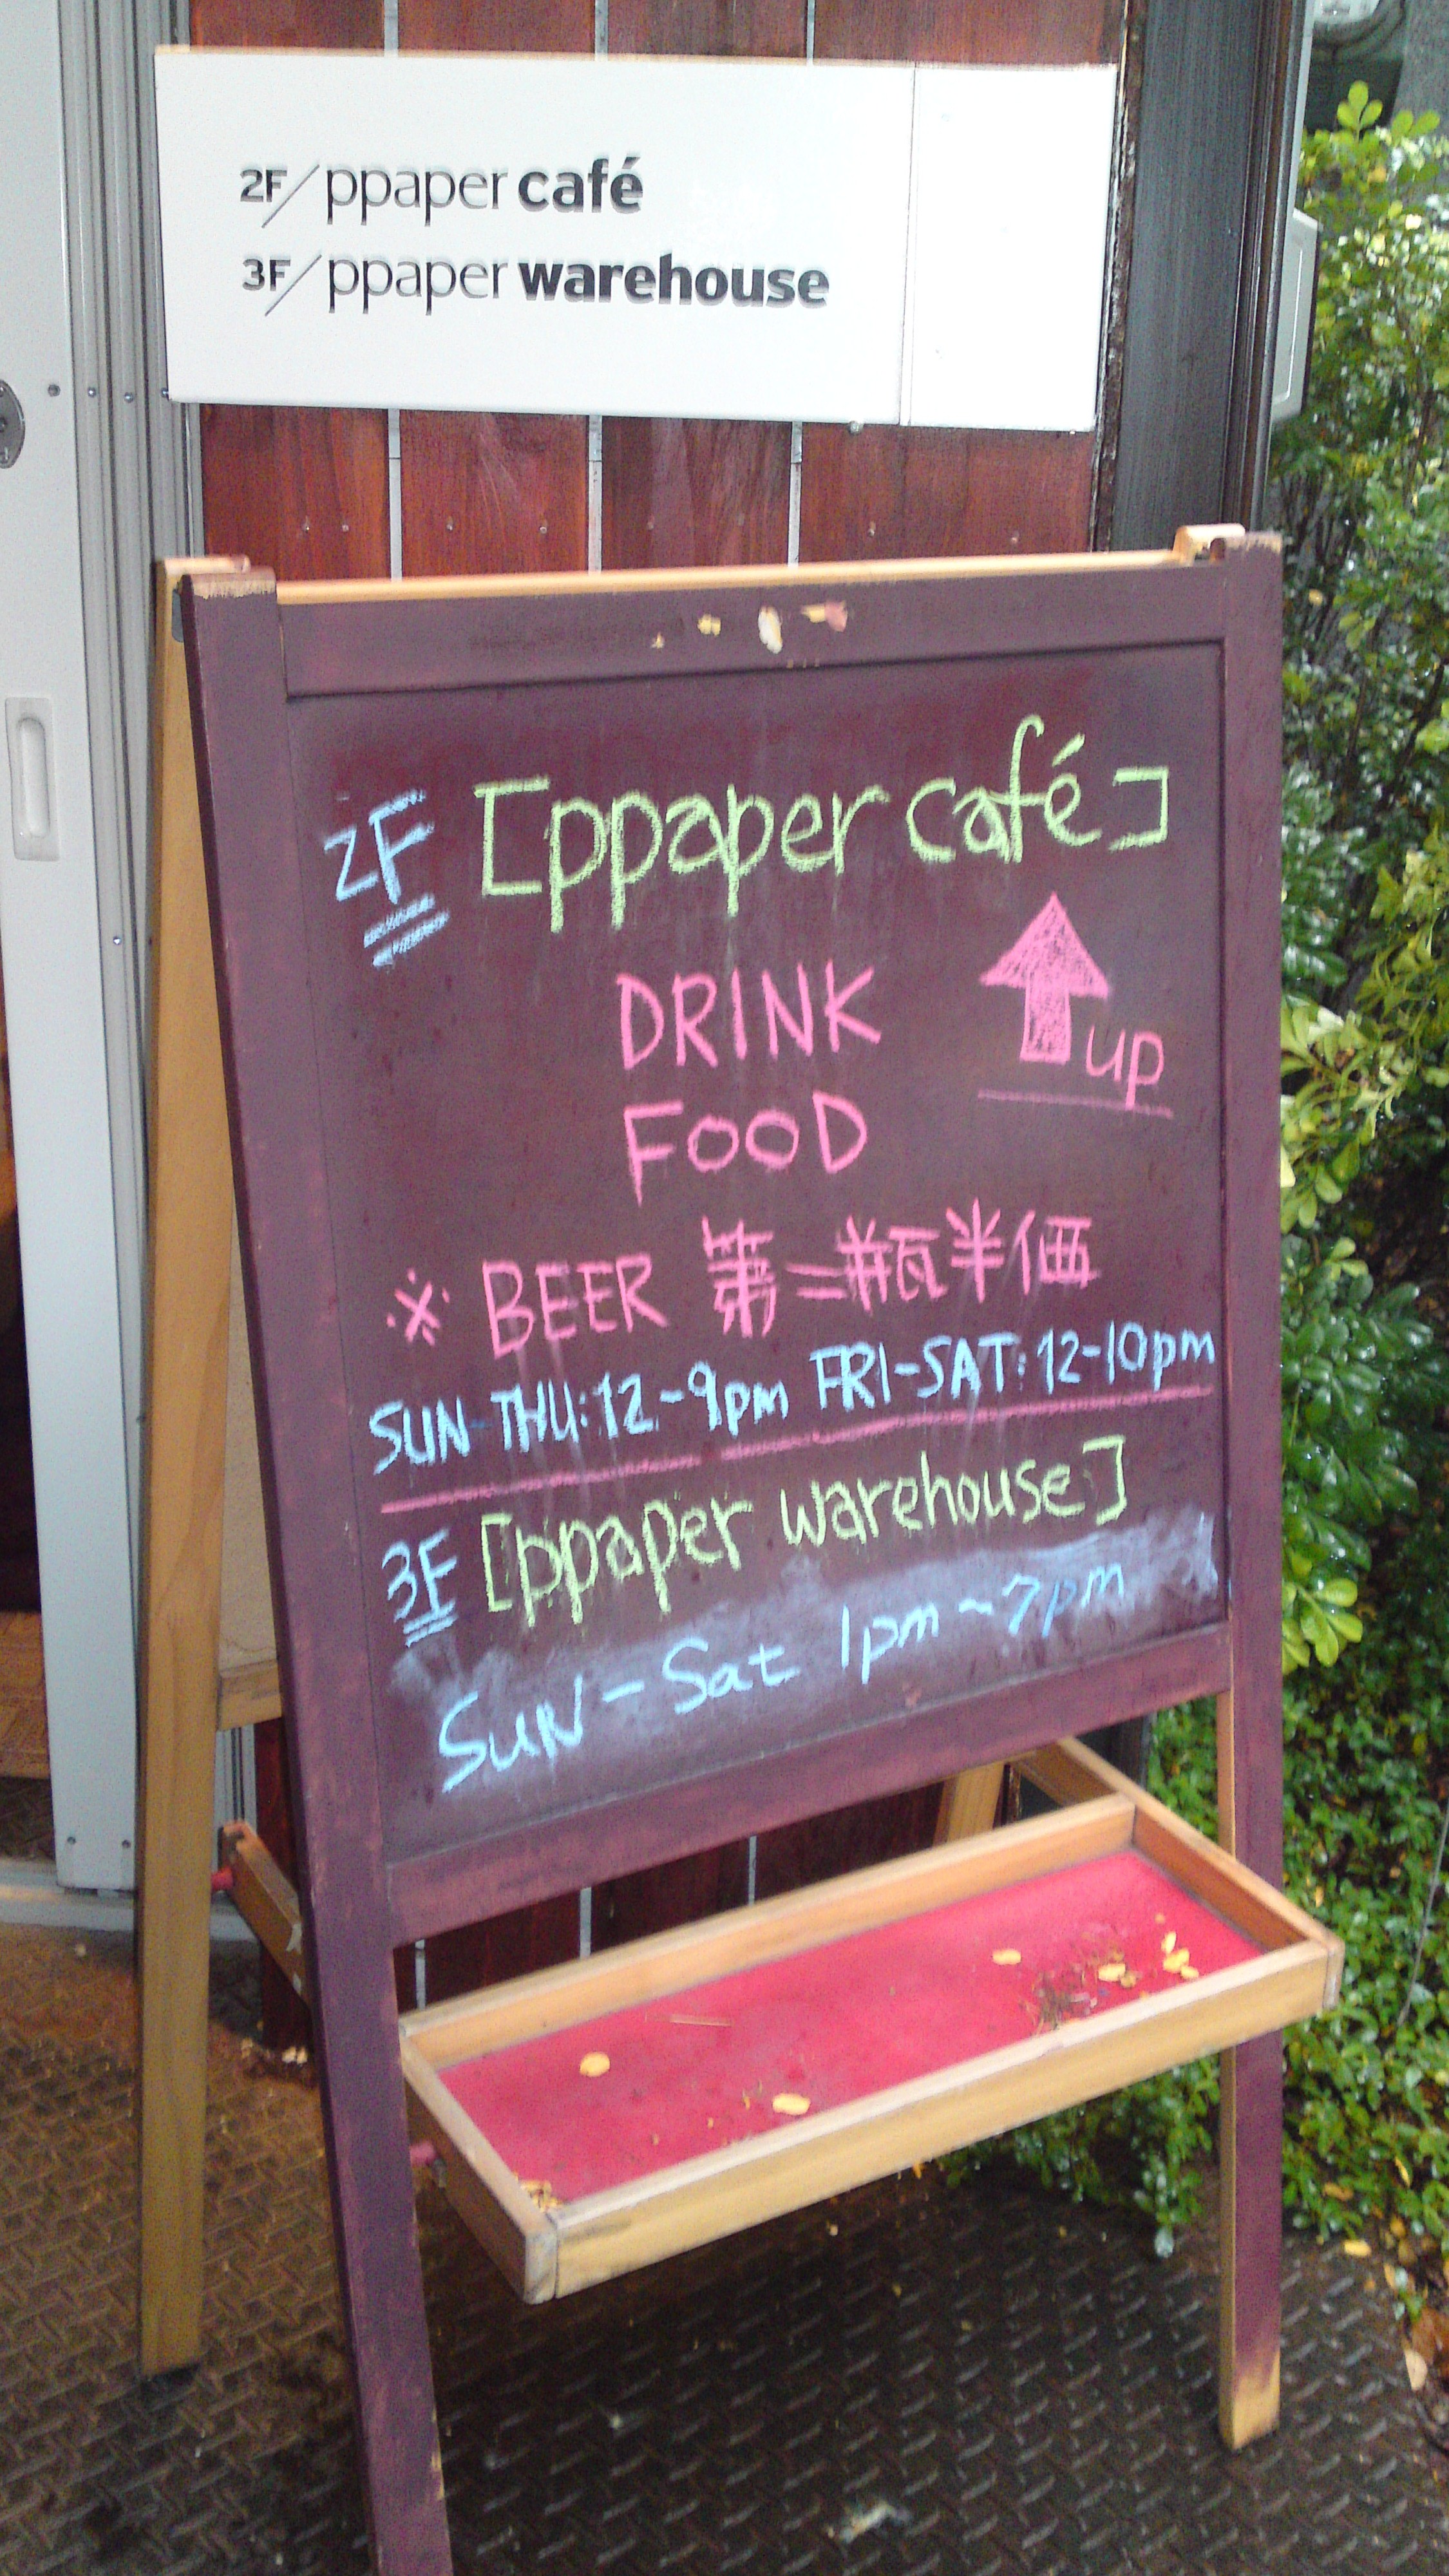 2F/ppaper café
3F/ppaper warehouse
2F [ppaper café]
DRINK
up
FOOD
※ BEER 第二瓶半価
SUN-THU:12-9pm FRI-SAT:12-10pm
3F [ppaper warehouse]
SUN-Sat 1pm~7pm